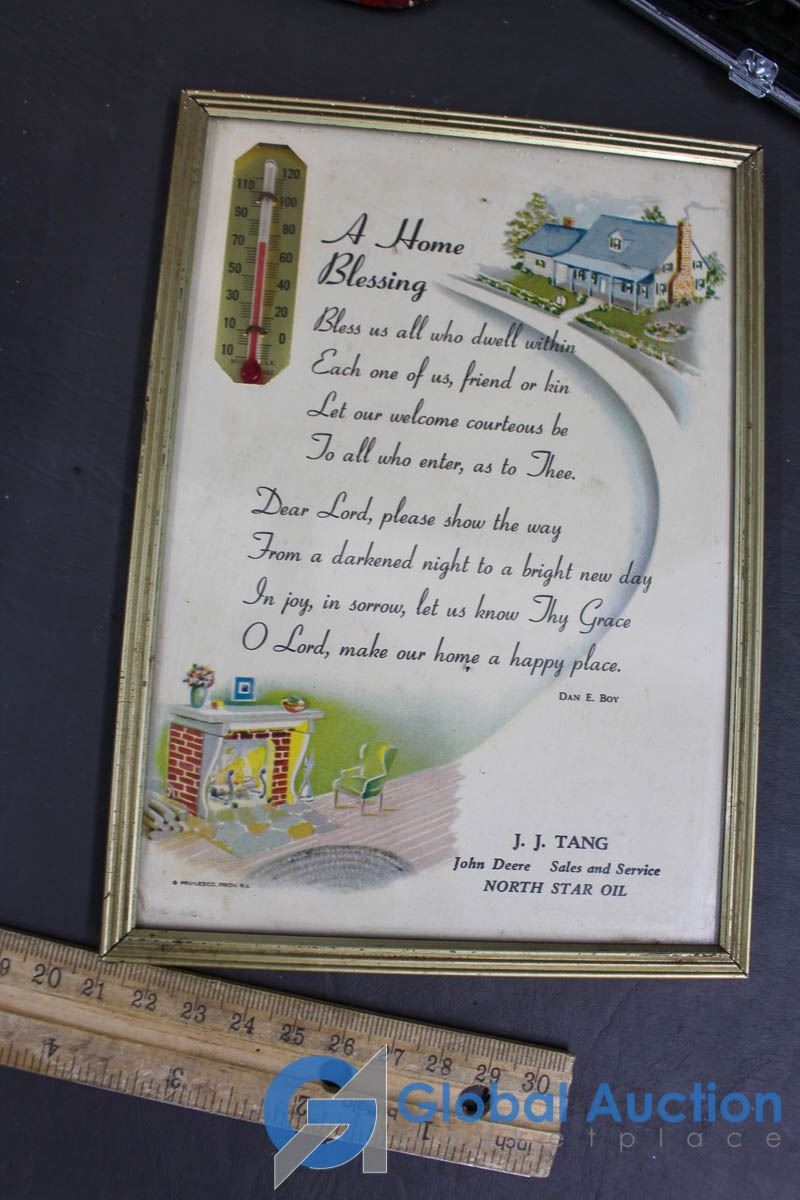 120
110
100
90
80
70
60
50
40
30
20
10
0
10
A Home
Blessing
Bless us all who dwell within
Each one of us, friend or kin
Let our welcome courteous be
To all who enter, as to Thee.
Dear Lord, please show the way
From a darkened night to a bright new day
In joy, in sorrow, let us know Thy Grace
O Lord, make our home a happy place.
DAN E. BOY
J. J. TANG
John Deere Sales and Service
NORTH STAR OIL
9 20 21 22 23 24 25 26 27 28 29 30
4 3 2 1 inch
Global Auction
etplace